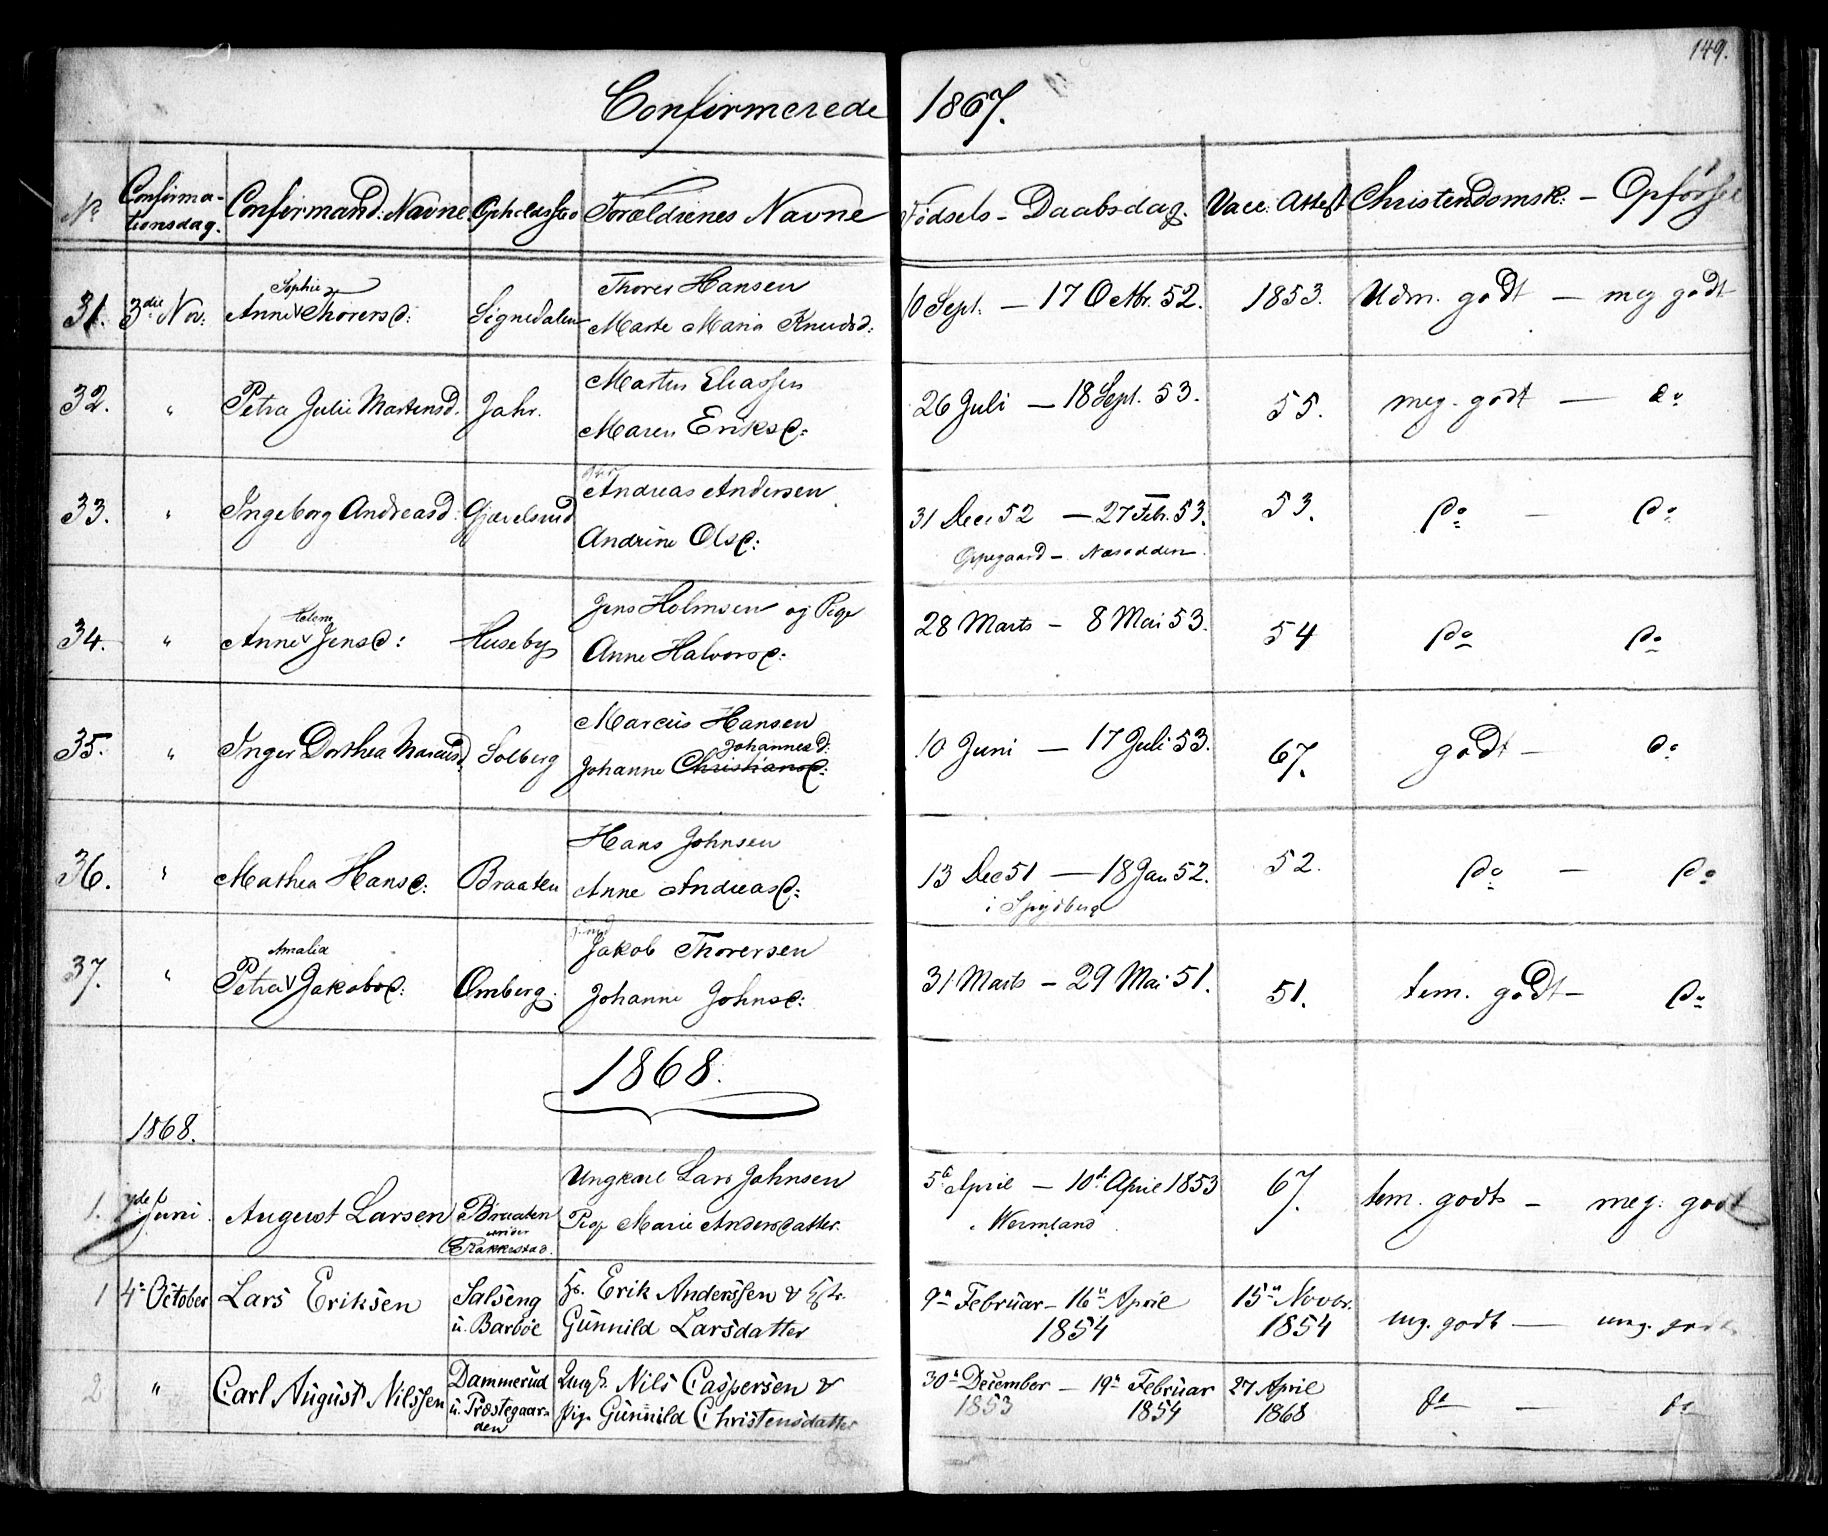 149.
Confirmerede 1867.
No Confirmationsdag. Confirmand: Navne Opholdssto Forældrenes Navne Fødsels - Daabsdag. Vacc: Attest Christendomsk: - Opførsel
31. 3die Nov: Anne Sophie Thorersd: Signedalen Thorer Hansen 10 Sept. — 17 Octbr. 52. 1853. Udm. godt — meg godt
Marte Maria Knudsd:
32. " Petra Julie Martensd. Jahr. Martin Eliassen 26 Juli — 18 Sept. 53. 55. meg. godt — do
Maren Eriksd:
33. " Ingeborg Andreasd: Gjærelsrud Andreas Andersen 31 Dec 52 — 27 Feb. 53. 53. do — do
Andrine Olsd: Oppegaard - Næsodden.
34. " Anne Helene Jensd: Huseby Jens Holmsen og Pige 28 Marts - 8 Mai 53. 54 do do
Anne Halvorsd:
35. " Inger Dorthea Marcusd. Solberg Marcus Hansen 10 Juni — 17 Juli 53. 67. godt — do
Johannesd:
Johanne Christiansd:
36. " Mathea Hansd: Braaten Hans Johnsen 13 Dec 51 — 18 Jan 52. 52. do — do
Anne Andreasd: i Spydberg
37. " Petra Amalia Jakobsd: Omberg. Jakob Thorersen 31 Marts - 29 Mai 51. 51. tem. godt — do
Johanne Johnsd:
1868.
1868.
1. 7de Juni. August Larsen Braaten under Rakkestad. Ungkarl Lars Johnsen 5te April — 10de April 1853 67. tem. godt - meg: godt
Pige Marie Andersdatter. i Wermland
1 4de October Lars Eriksen Salseng u. Barböl Erik Anderssen & 9de Februar - 16de April 15de Novbr.
Gunnild Larsdatter 1854 1854 mg. godt — mg. godt
2 " Carl August Nilssen Dammerud u. Præstegaarden Ungk. Nils Caspersen & 30te December — 19de Februar 27 April
Pige Gunnild Christensdatter 1853 1854 1868 do — do